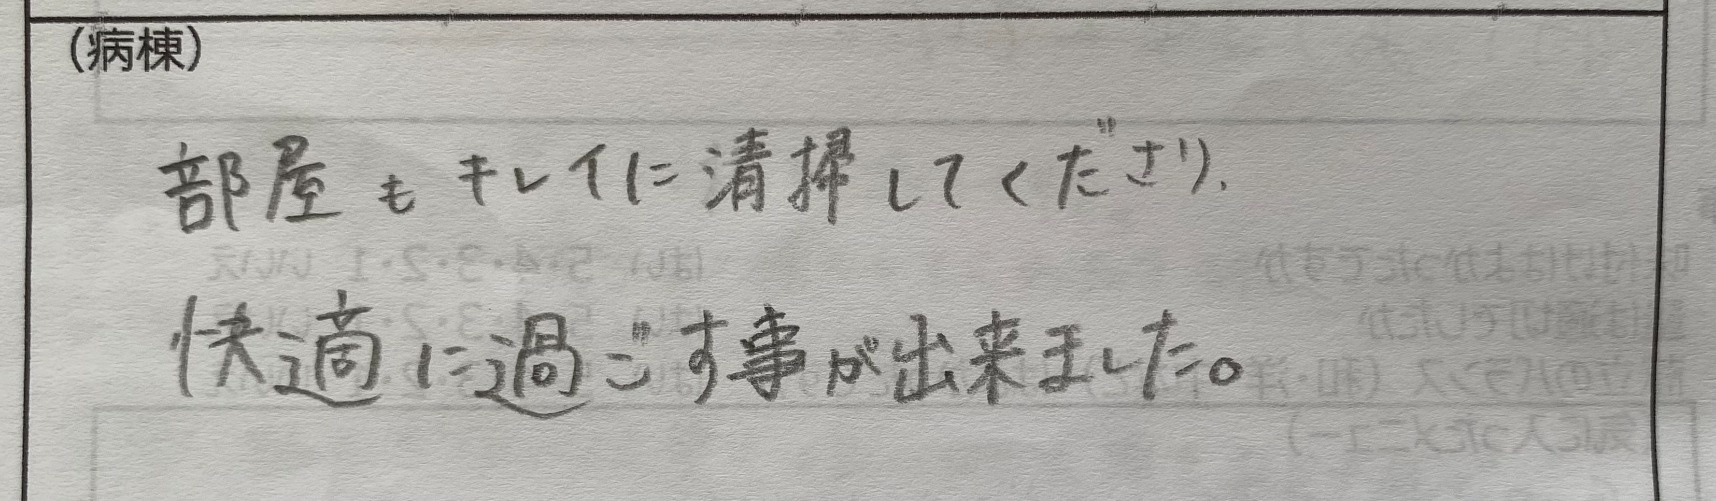 (病棟)
部屋もキレイに清掃してくださり、
快適に過ごす事が出来ました。